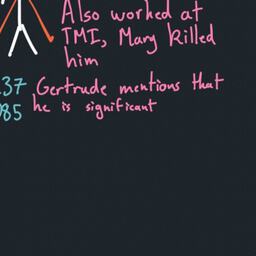 Also worked at
TMI, Mary killed
him
37 Gertrude mentions that
085 he is significant